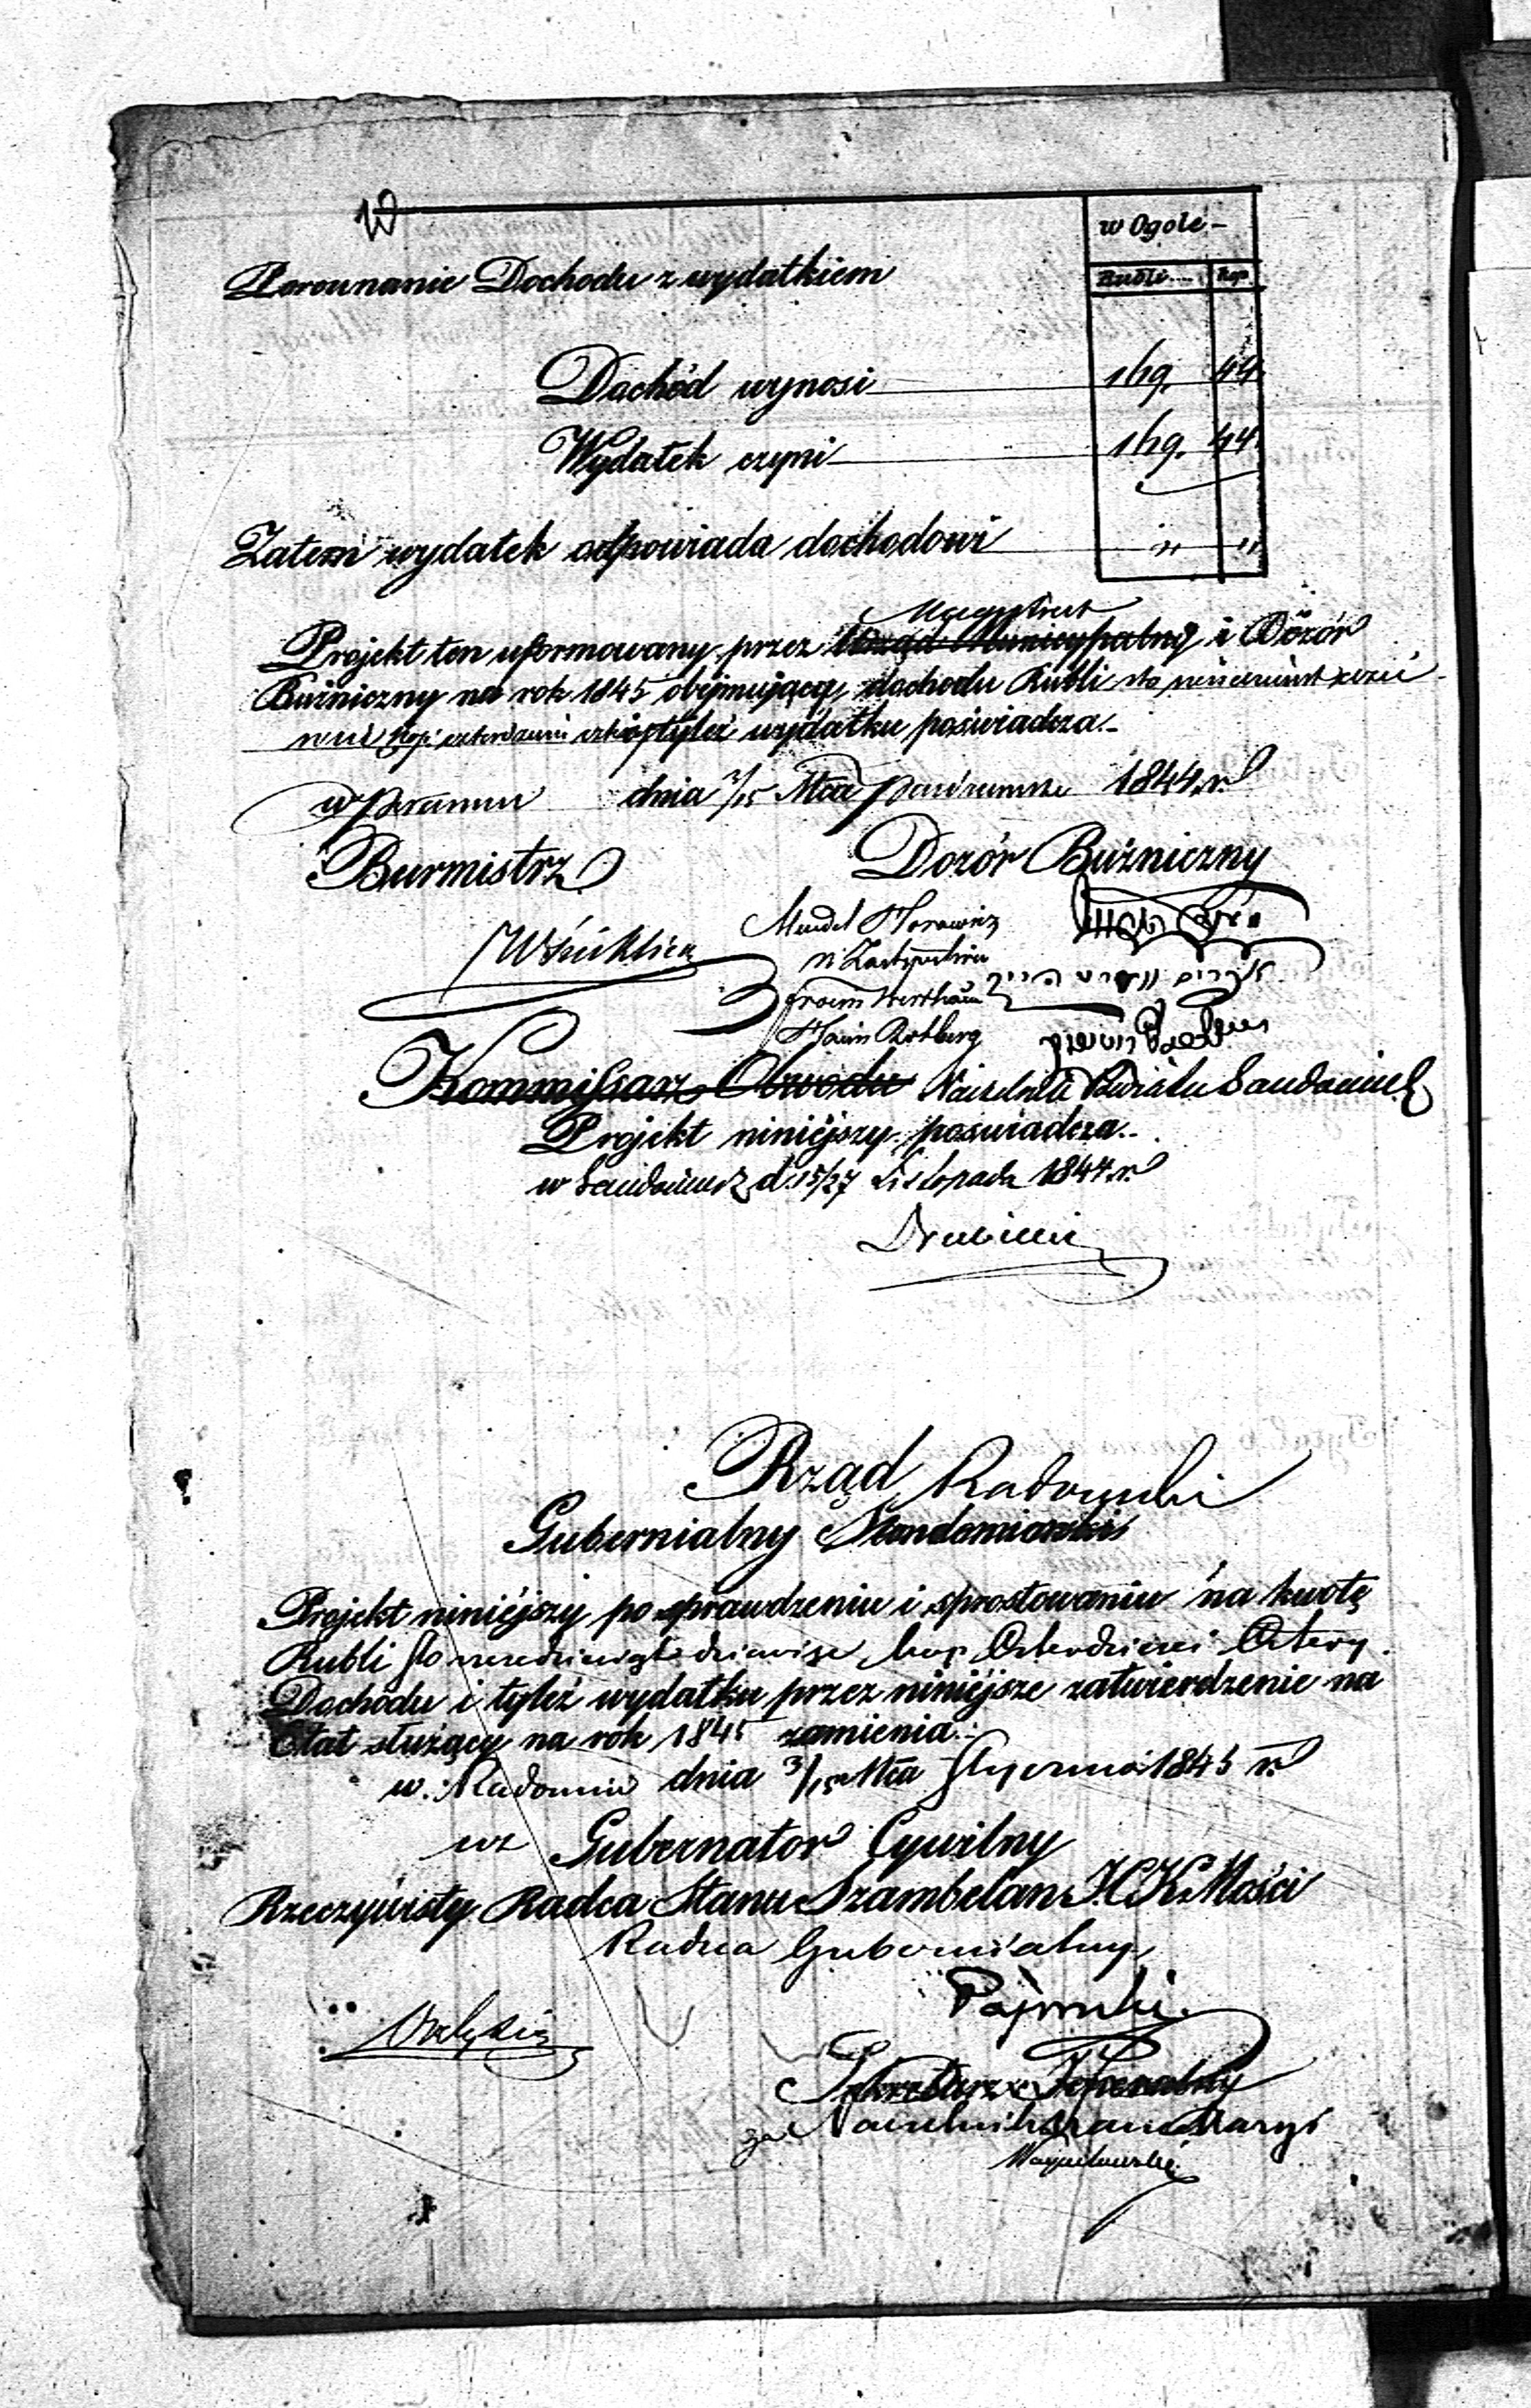 w Ogole
Rubli Kop
Porównanie Dochodu z wydatkiem
Dochód wynosi 169. 44.
Wydatek czyni 169. 44.
Zatem wydatek odpowiada dochodowi " "
Magistrat
Projekt ten uformowany przez Urząd Municypalny i Dozór
Bużniczny na rok 1845 obejmujący dochodu Rubli sto
kop. tyleż wydatku poświadcza.
dnia 3/15 Mca Października 1844 r.
Burmistrz Dozór Bużniczny
Mendel Horowicz
Haim Rotberg
Kommissarz Obwodu Naczelnik Powiatu Sandomier.
Projekt niniéjszy poświadcza.
w Sandomierz d. 15/27 Listopada 1844 r.
Rząd Radomski
Gubernialny Sandomierski
Projekt niniéjszy po sprawdzeniu i sprostowaniu na kwotę
Rubli sto sześćdziesiąt dziewięć kop. Czterdzieści Cztery
Dochodu i tyleż wydatku przez niniéjsze zatwierdzenie na
Etat służący na rok 1845 zamienia.
w Radomiu dnia 3/15 Mca Stycznia 1845 r.
wz Gubernator Cywilny
Rzeczywisty Radca Stanu Szambelan J.C.K. Mości
Radca Gubernialny
Sekretarz Jeneralny
za Naczelnik Kancellaryi